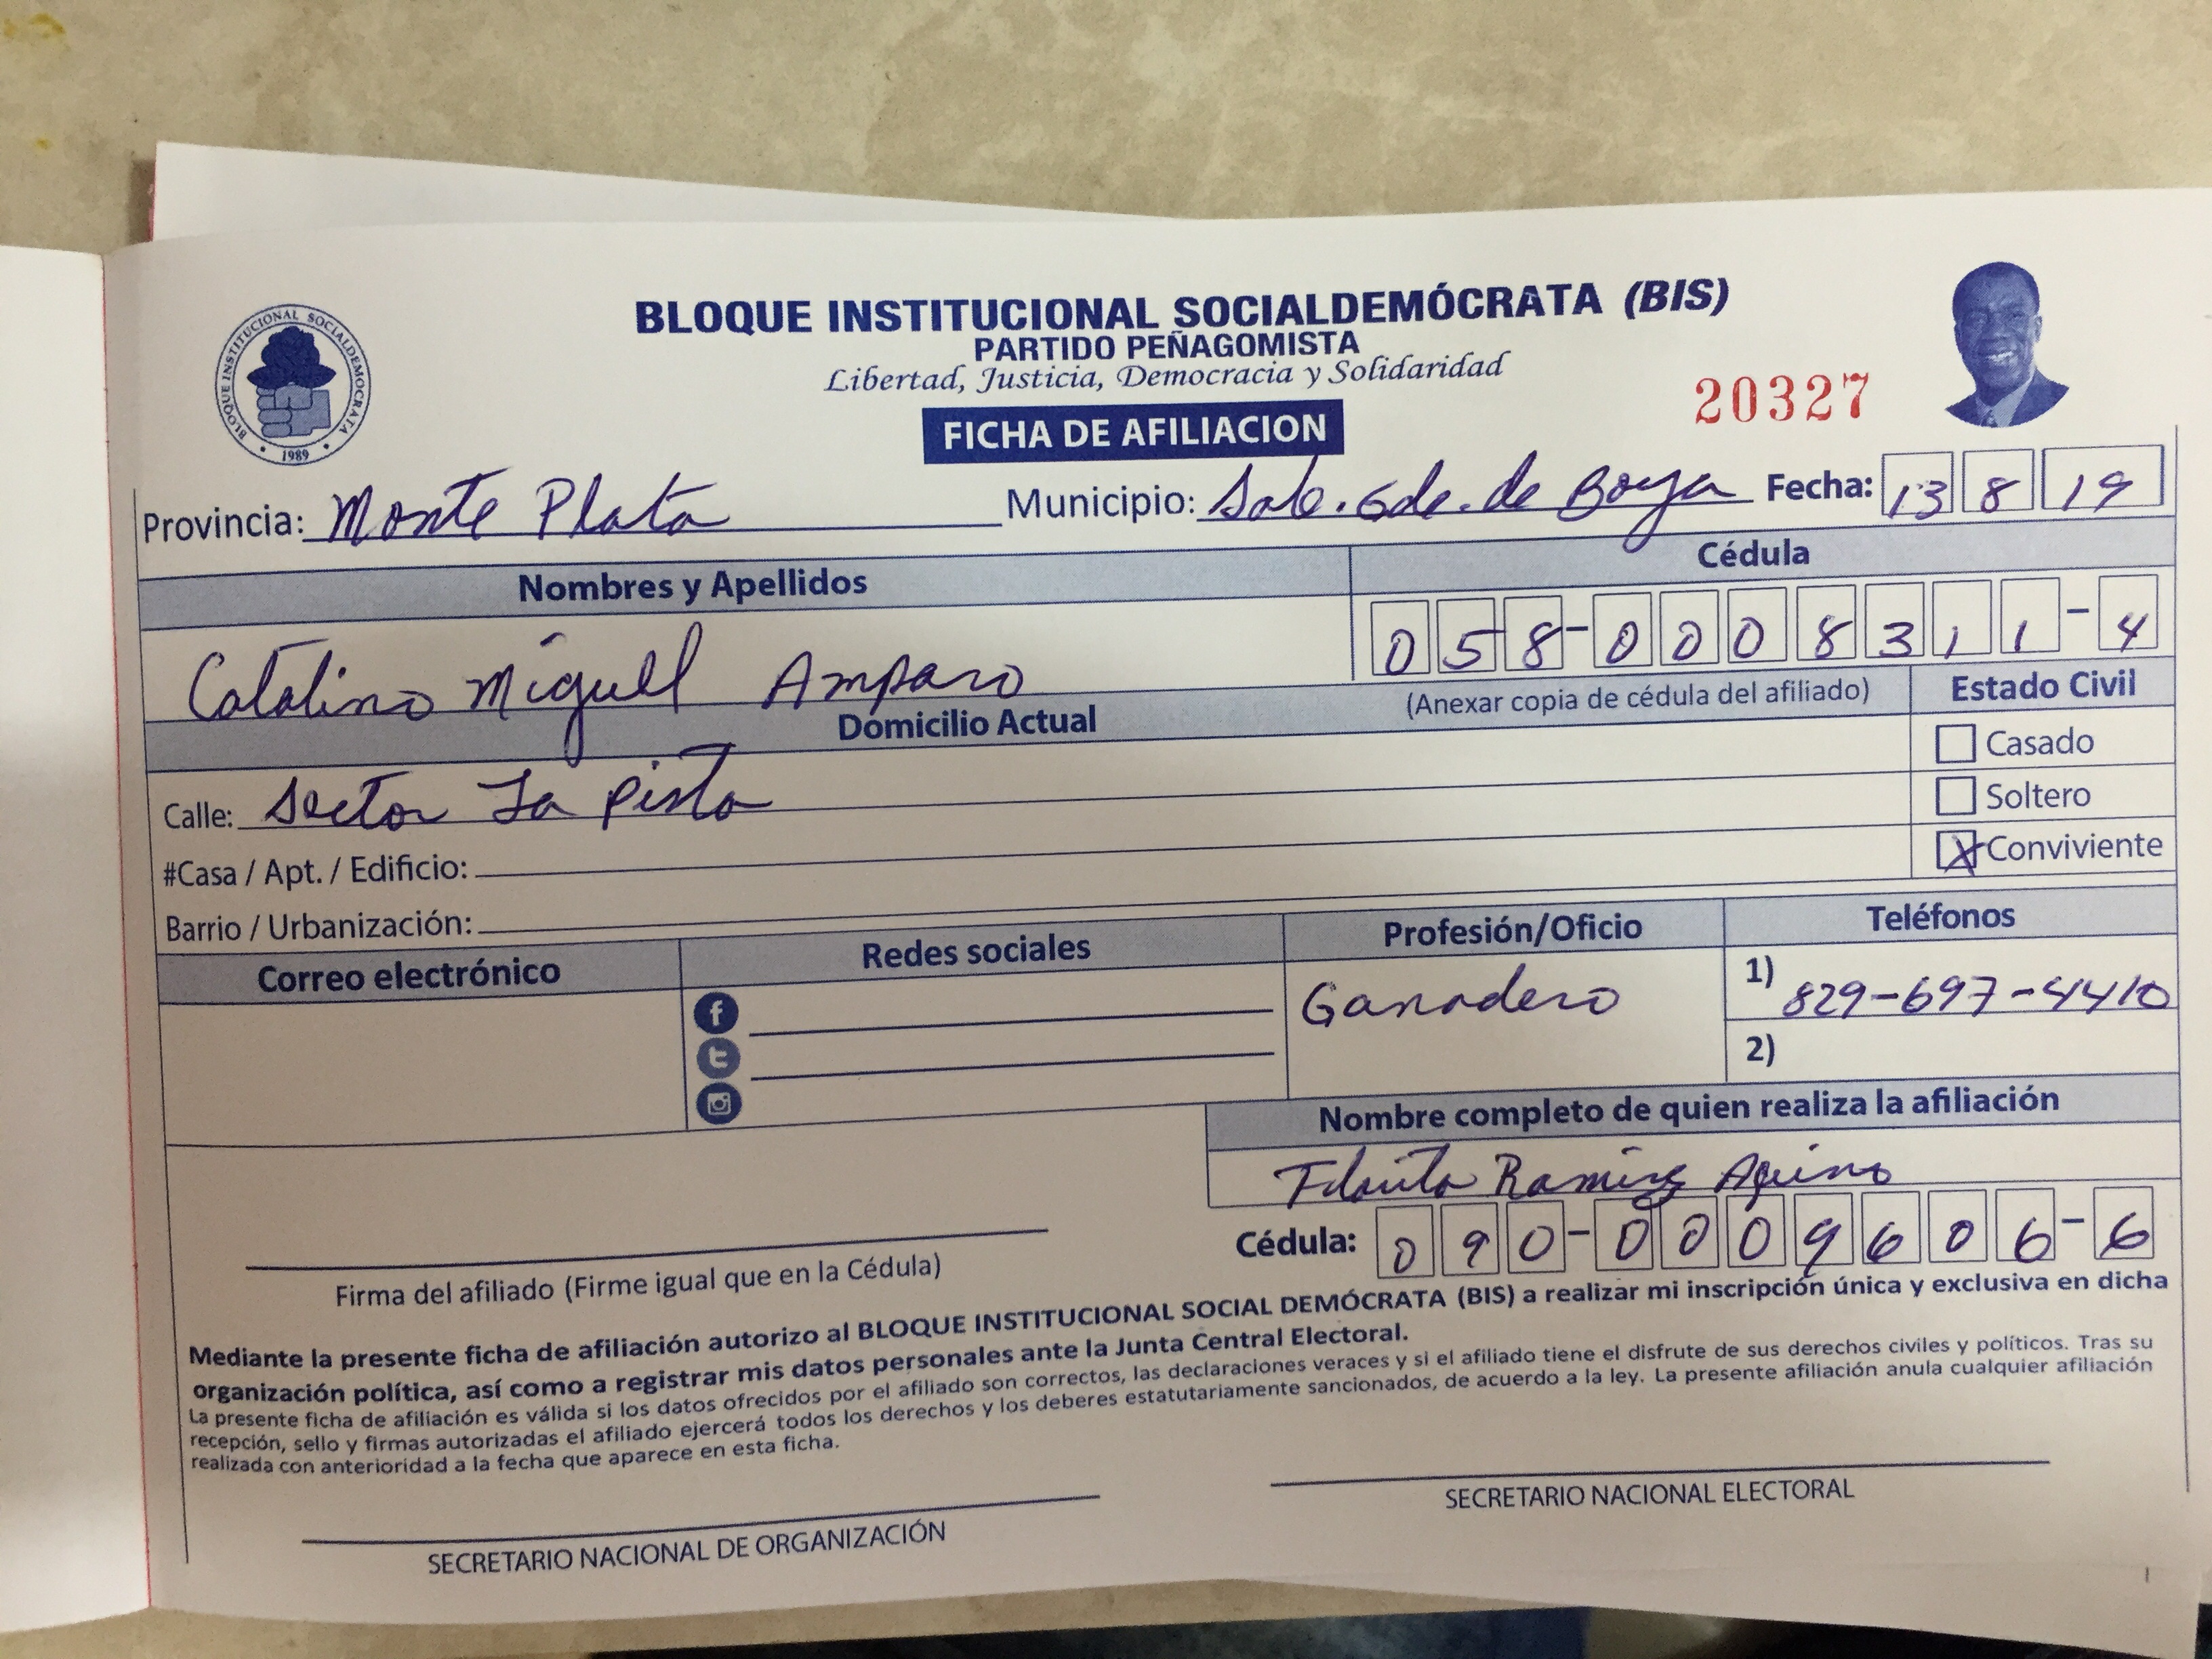 BLOQUE INSTITUCIONAL SOCIALDEMÓCRATA (BIS)
PARTIDO PEÑAGOMISTA
Libertad, Justicia, Democracia y Solidaridad
BLOQUE INSTITUCIONAL SOCIALDEMOCRATA
1989
20327
FICHA DE AFILIACION
Provincia: Monte Plata Municipio: Sab. Gde. de Boya Fecha: 13 8 19
Nombres y Apellidos Cédula
Catalino Miguel Amparo 058-0008311-4
Domicilio Actual (Anexar copia de cédula del afiliado) Estado Civil
Casado
Calle: Sector La Pista Soltero
#Casa / Apt. / Edificio: X Conviviente
Barrio / Urbanización:
Correo electrónico Redes sociales Profesión/Oficio Teléfonos
Ganadero 1) 829-697-4410
2)
Nombre completo de quien realiza la afiliación
Ramirez Aquino
Cédula: 090-0009606-6
Firma del afiliado (Firme igual que en la Cédula)
Mediante la presente ficha de afiliación autorizo al BLOQUE INSTITUCIONAL SOCIAL DEMÓCRATA (BIS) a realizar mi inscripción única y exclusiva en dicha
organización política, así como a registrar mis datos personales ante la Junta Central Electoral.
La presente ficha de afiliación es válida si los datos ofrecidos por el afiliado son correctos, las declaraciones veraces y si el afiliado tiene el disfrute de sus derechos civiles y políticos. Tras su
recepción, sello y firmas autorizadas el afiliado ejercerá todos los derechos y los deberes estatutariamente sancionados, de acuerdo a la ley. La presente afiliación anula cualquier afiliación
realizada con anterioridad a la fecha que aparece en esta ficha.
SECRETARIO NACIONAL DE ORGANIZACIÓN SECRETARIO NACIONAL ELECTORAL